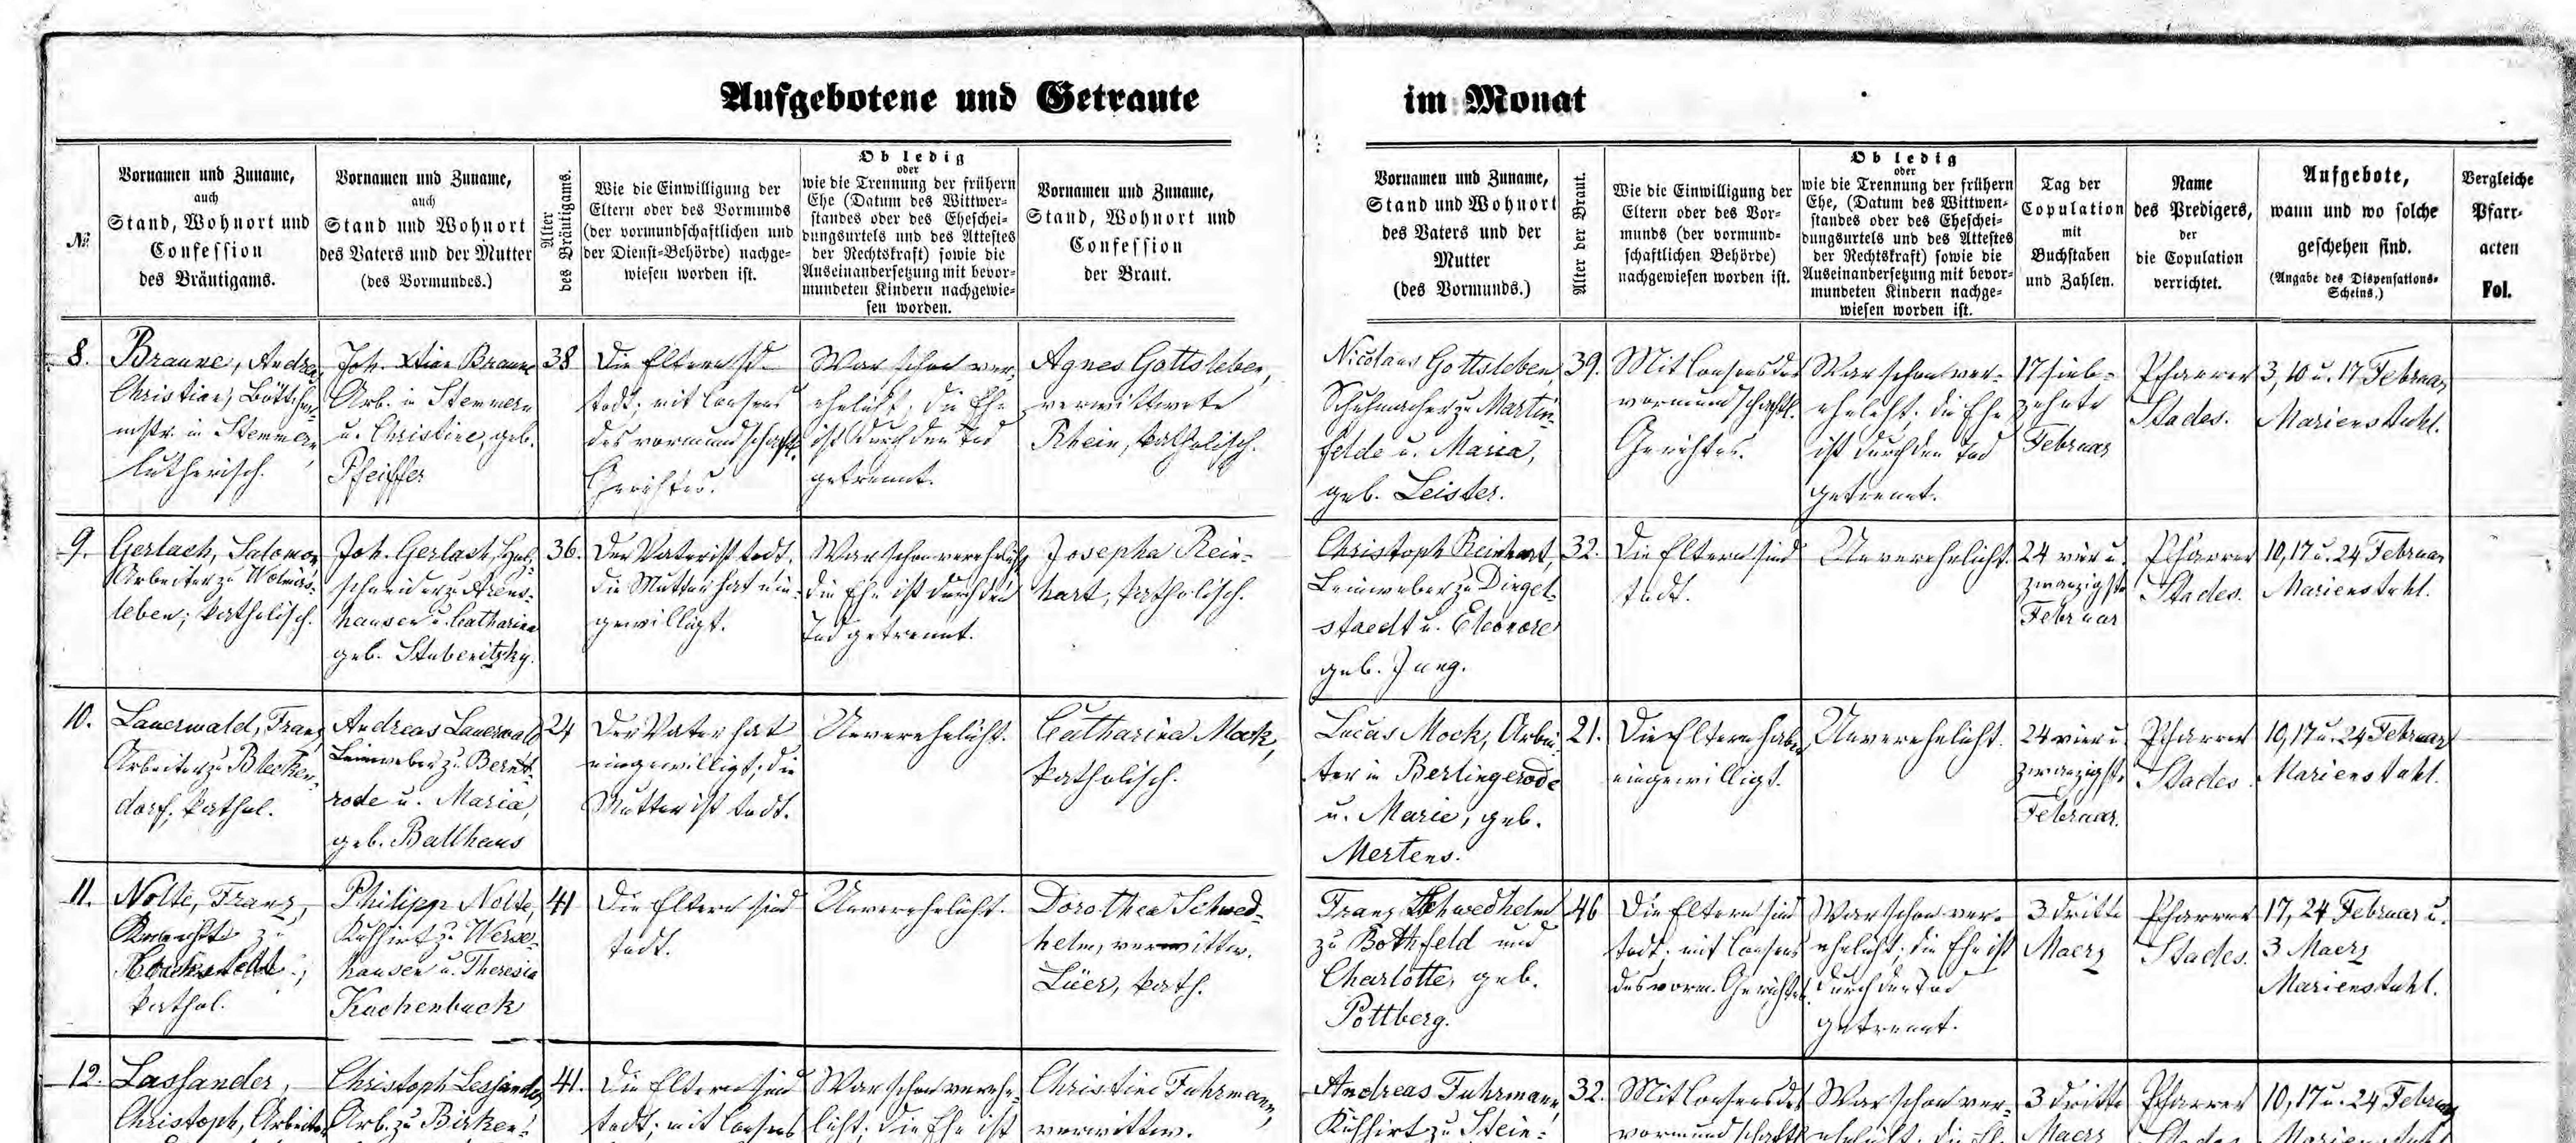 Aufgebotene und Getraute im Monat
№
Vornamen und Zuname,
auch
Stand, Wohnort und
Confession
des Bräutigams.
Vornamen und Zuname,
auch
Stand und Wohnort
des Vaters und der Mutter
(des Vormundes.)
Alter
des Bräutigams.
Wie die Einwilligung der
Eltern oder des Vormunds
(der vormundschaftlichen und
der Dienst-Behörde) nachge-
wiesen worden ist.
Ob ledig
oder
wie die Trennung der frühern
Ehe (Datum des Wittwer-
standes oder des Eheschei-
dungsurtels und des Attestes
der Rechtskraft) sowie die
Auseinandersetzung mit bevor-
mundeten Kindern nachgewie-
sen worden.
Vornamen und Zuname,
Stand, Wohnort und
Confession
der Braut.
Vornamen und Zuname,
Stand und Wohnort
des Vaters und der
Mutter
(des Vormunds.)
Alter der Braut.
Wie die Einwilligung der
Eltern oder des Vor-
munds (der vormund-
schaftlichen Behörde)
nachgewiesen worden ist.
Ob ledig
oder
wie die Trennung der frühern
Ehe, (Datum des Wittwen-
standes oder des Eheschei-
dungsurtels und des Attestes
der Rechtskraft) sowie die
Auseinandersetzung mit bevor-
mundeten Kindern nachge-
wiesen worden ist.
Tag der
Copulation
mit
Buchstaben
und Zahlen.
Name
des Predigers,
der
die Copulation
verrichtet.
Aufgebote,
wann und wo solche
geschehen sind.
(Angabe des Dispensations-
Scheins.)
Vergleiche
Pfarr-
acten
Fol.
8.
Braune, Andreas
Christian, Böttcher-
mstr. in Stemmern,
lutherisch.
Joh. Xtian Braune
Arb. in Stemmern
u. Christine, geb.
Pfeiffer
38
Die Eltern sd.
todt; mit Consens
des vormundschaftl.
Gerichtes.
War schon ver-
ehelicht; die Ehe
ist durch den Tod
getrennt.
Agnes Gottsleben,
verwittwete
Rhein, katholisch.
Nicolaus Gottsleben
Schuhmacher zu Martin-
felde u. Maria,
geb. Leister.
39.
Mit Consens des
vormundschaftl.
Gerichtes.
War schon ver-
ehelicht; die Ehe
ist durch den Tod
getrennt.
17 sieb-
zehnte
Februar
Pfarrer
Stades.
3, 10 u. 17 Februar
Marienstuhl.
9.
Gerlach, Salomon
Arbeiter zu Wolmirs-
leben; katholisch.
Joh. Gerlach, Holz-
schneider zu Arens-
hausen u. Catharina
geb. Stuberitzky.
36.
Der Vater ist todt.
die Mutter hat ein-
gewilligt.
War schon verehelicht
die Ehe ist durch den
Tod getrennt.
Josepha Rein-
hart, katholisch.
Christoph Reinhart,
Leinweber zu Dingel-
staedt u. Eleonore
geb. Jung.
32.
Die Eltern sind
todt.
Unverehelicht.
24 vier u.
zwanzigste
Februar
Pfarrer
Stades.
10, 17 u. 24 Februar
Marienstuhl.
10.
Lauerwald, Franz
Arbeiter zu Blecken-
dorf, kathol.
Andreas Lauerwald
Leinweber zu Bernt-
rode u. Maria,
geb. Ballhaus
24
Der Vater hat
eingewilligt; die
Mutter ist todt.
Unverehelicht.
Catharina Mock,
katholisch.
Lucas Mock, Arbei-
ter in Berlingerode
u. Marie, geb.
Mertens.
21.
Die Eltern haben
eingewilligt.
Unverehelicht.
24 vier u
zwanzigste
Februar.
Pfarrer
Stades.
10, 17 u. 24 Februar
Marienstuhl.
11.
Nolte, Franz,
zu
kathol.
Philipp Nolte,
Kuhhirt zu Werxe-
hausen u. Theresia
Kuchenbuck
41
Die Eltern sind
todt.
Unverehelicht.
Dorothea Schwed-
helm, verwittw.
Lüer, kath.
Franz Schwedhelm
zu Bothfeld und
Charlotte, geb.
Pottberg.
46
Die Eltern sind
todt; mit Consens
des vorm. Gerichtes
War schon ver-
ehelicht; die Ehe ist
durch den Tod
getrennt.
3 dritte
Maerz
Pfarrer
Stades.
17, 24 Februar u.
3 Maerz
Marienstuhl.
12.
Lassander,
Christoph, Arbeiter
Christoph Lassander
Arb. zu Birken-
41.
Die Eltern sind
todt; mit Consens
War schon verehe-
licht; die Ehe ist
Christine Fuhrmann,
verwittw.
Andreas Fuhrmann,
Kuhhirt zu Stein-
32.
Mit Consens des
vormundschaftl
War schon ver-
ehelicht; die Eh
3 dritte
Maerz
Pfarrer
Stades
10, 17 u. 24 Februar
Marienstuhl